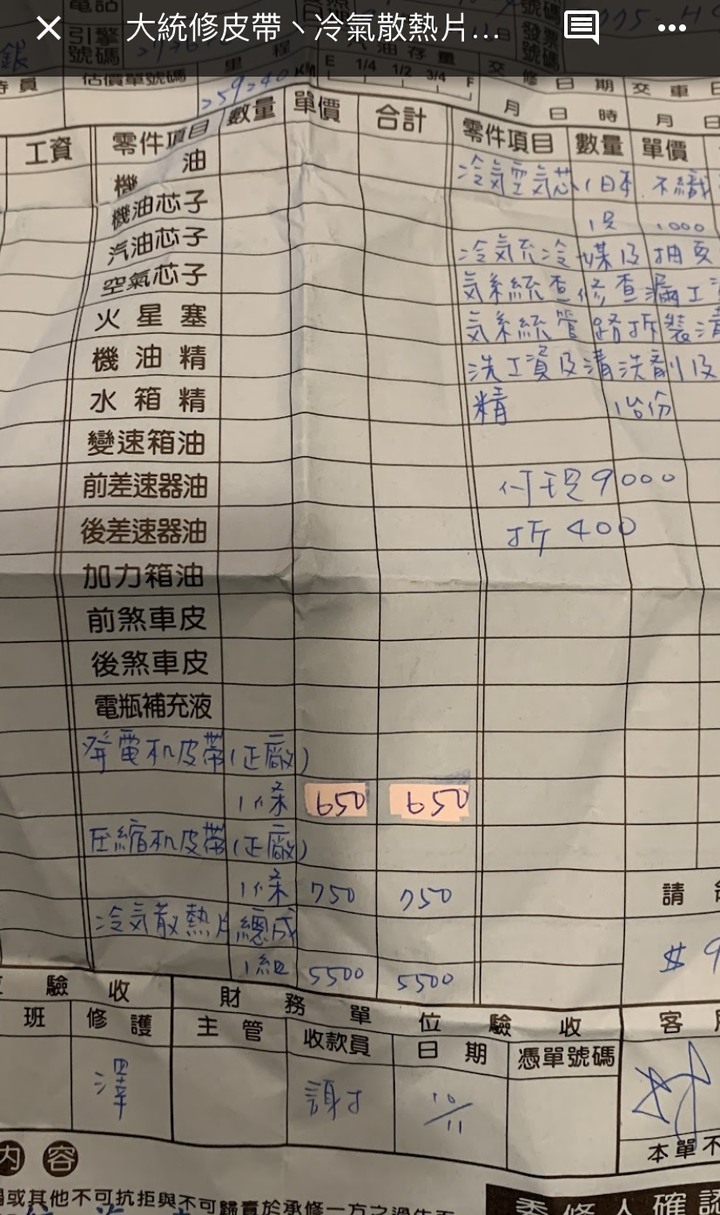 大統修皮帶、冷氣散熱片...
電話
號碼
引擎號碼
里程
汽油存量
發票號碼
銀
估價單號碼
259240 KM
E 1/4 1/2 3/4 F
交修日期
交車日
月 日 時
月 日
工資
零件項目 數量 單價 合計
零件項目 數量 單價
機油
冷気空気芯 1日本 不織
機油芯子
1000
汽油芯子
空氣芯子
気系統查修查漏工資
火星塞
気系統管路拆裝清
機油精
洗工資及清洗劑及
水箱精
精 1台份
變速箱油
前差速器油
付現9000
後差速器油
折400
加力箱油
前煞車皮
後煞車皮
電瓶補充液
發電机皮帶(正廠)
1條 650 650
压縮机皮帶(正廠)
1條 750 750
冷気散熱片總成
1組 5500 5500
請
$9
驗收
財務單位驗收
班 修護 主管 收款員 日期 憑單號碼
客戶
澤
10/11
本單不
內容
或其他不可抗拒與不可歸責於承修一方之過失而
委修人確認